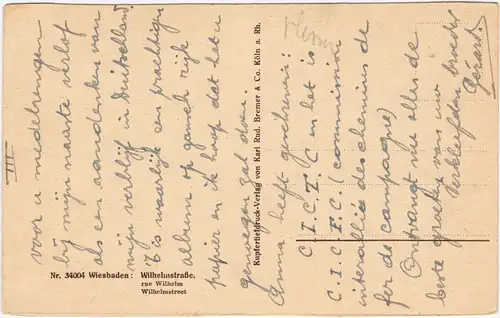 III
voor u medebrengen
bij mijn naaste verlof
als een aandenken van
mijn verblijf in Duitschland.
't is waarlijk een prachtigen
album op gansch rijk
papier en ik hoop dat het u
genoegen zal doen.
Anna heeft geschreven:
C.I.C.T.C en het is
C.I.C.F.C. (commission
interalliée des chemins de
fer de campagne)
Ontvangt nu alles de
beste groeten van uw
verkleefden broeder
Gérard.
Nr. 34004 Wiesbaden: Wilhelmstraße.
rue Wilhelm
Wilhelmstreet
Kupfertiefdruck-Verlag von Karl Rud. Bremer & Co. Köln a. Rh.